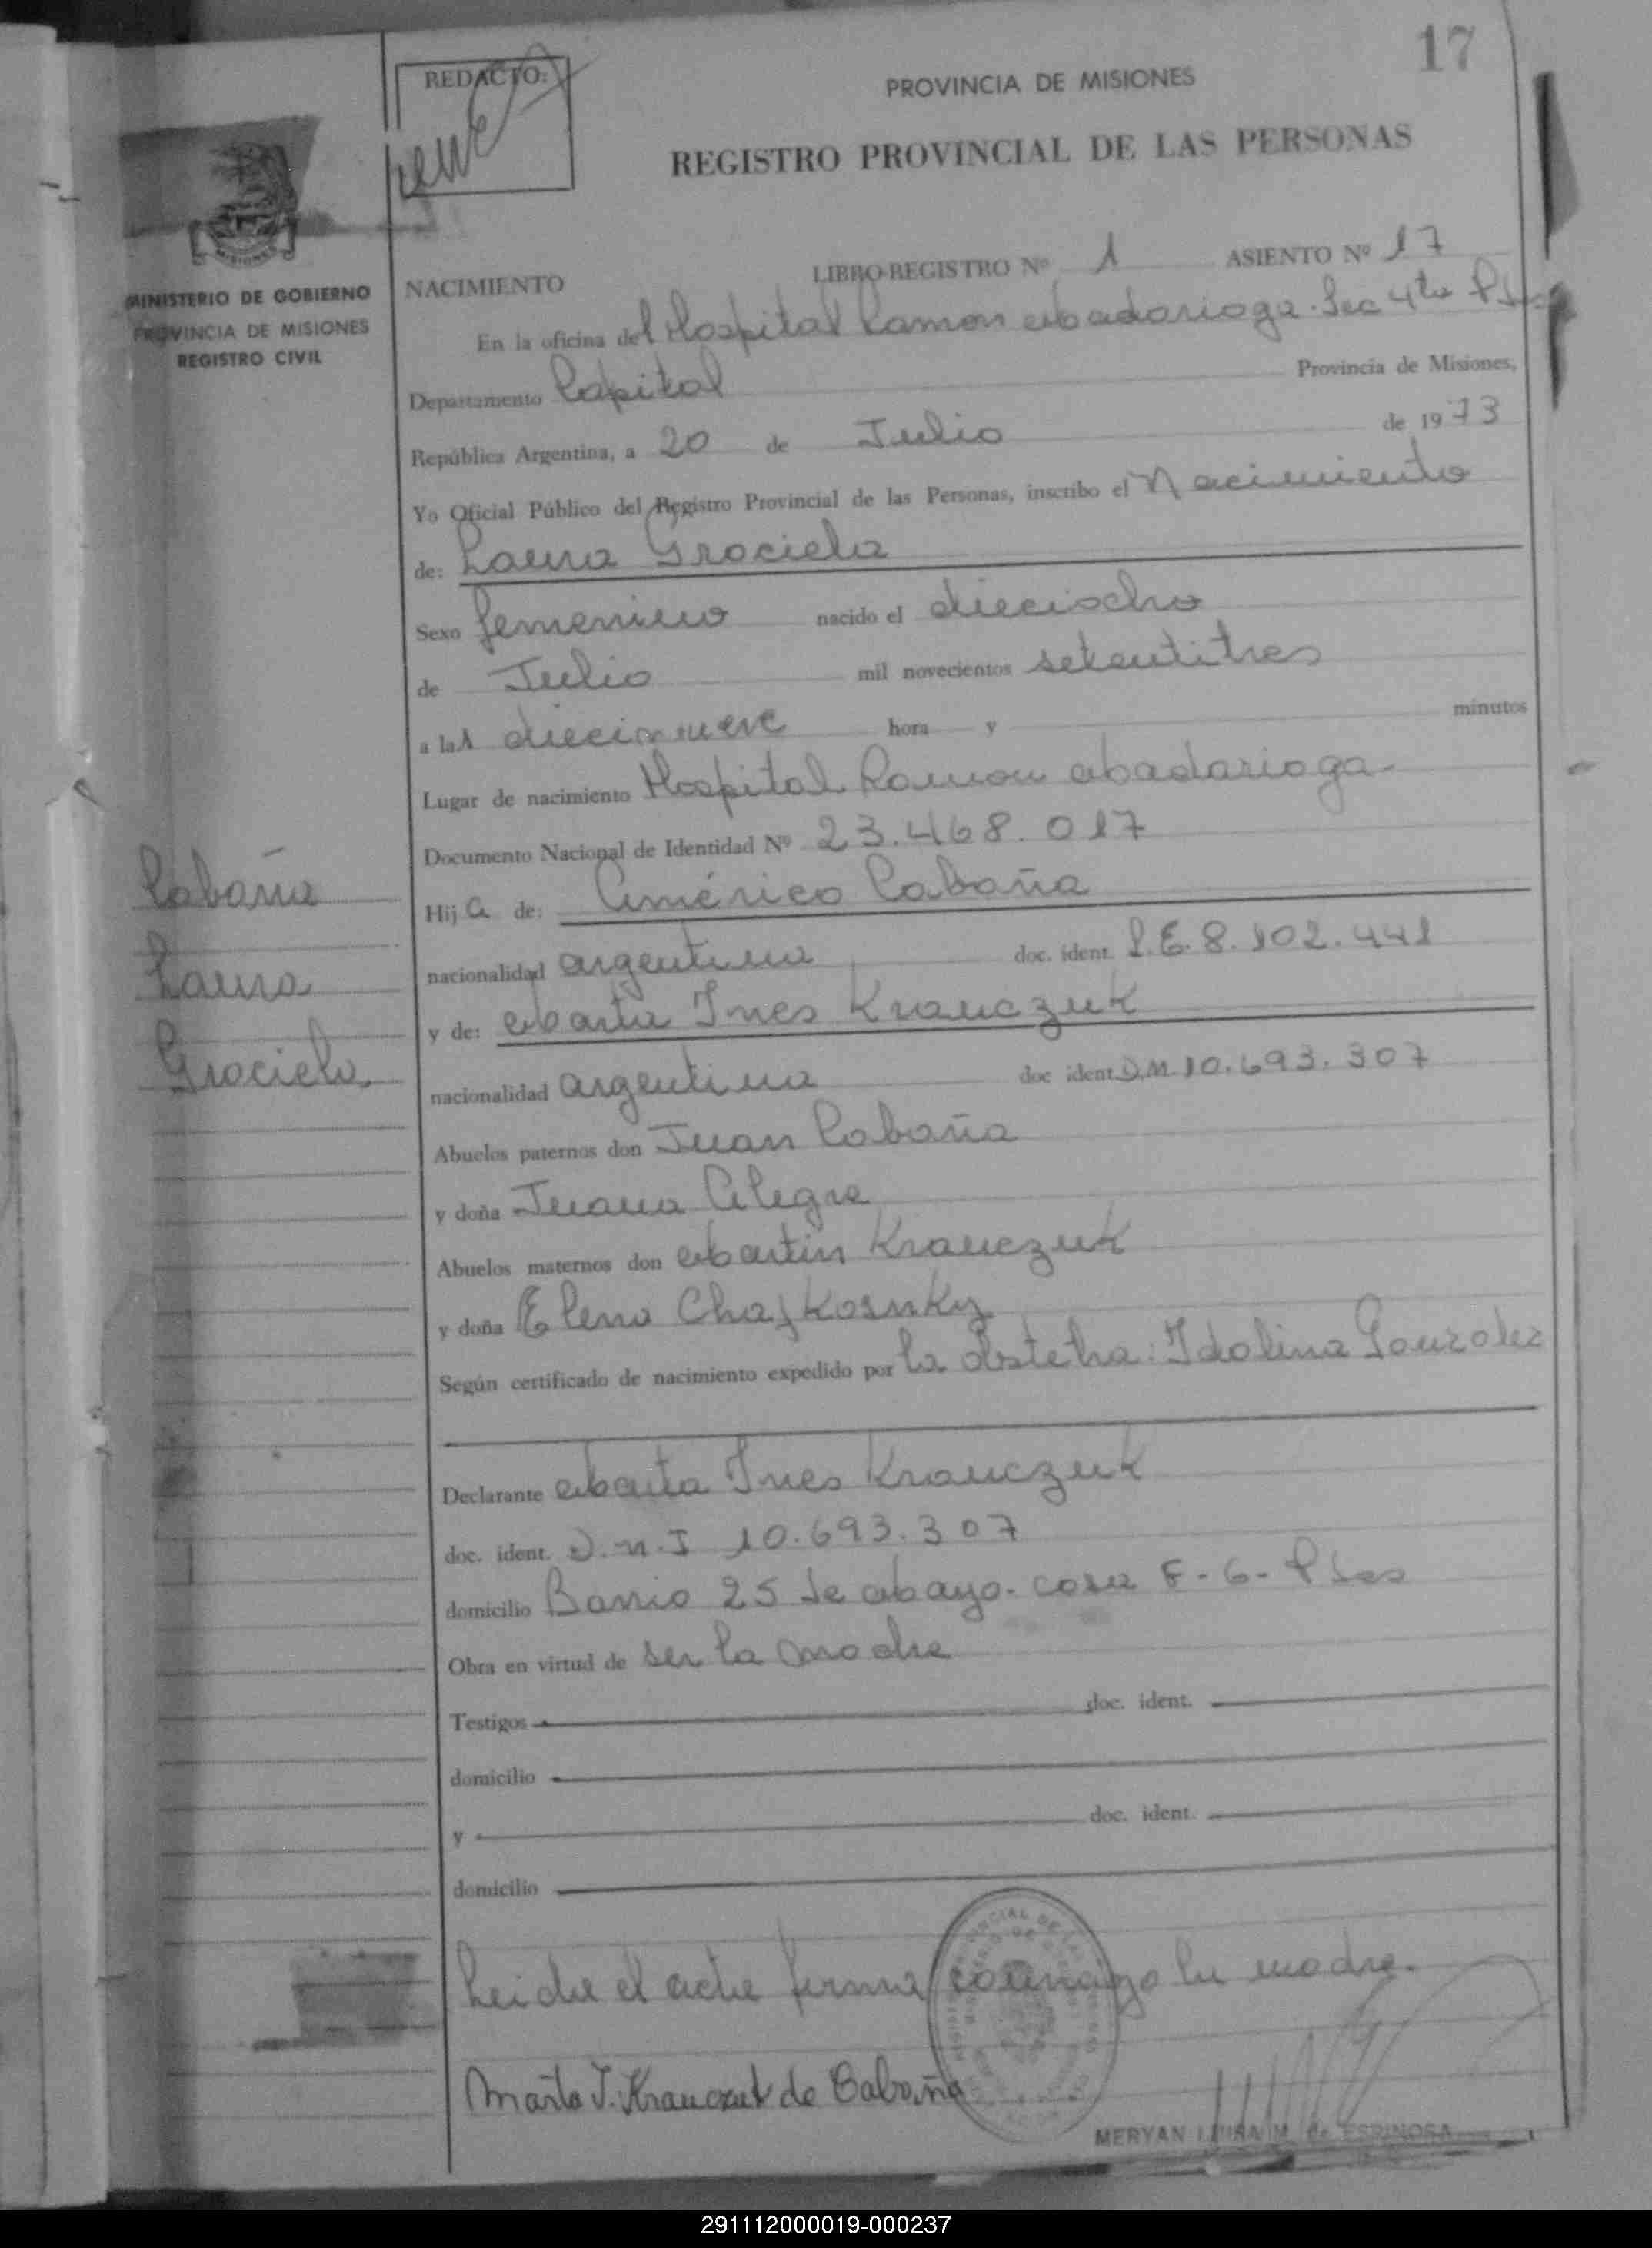 17
REDACTO:
PROVINCIA DE MISIONES
REGISTRO PROVINCIAL DE LAS PERSONAS
MISIONES
MINISTERIO DE GOBIERNO
PROVINCIA DE MISIONES
REGISTRO CIVIL
NACIMIENTO LIBRO-REGISTRO Nº 1 ASIENTO Nº 17
En la oficina del Hospital Ramon Madariaga. Sec 4ta Pdas
Departamento Capital Provincia de Misiones,
República Argentina, a 20 de Julio de 1973
Yo Oficial Público del Registro Provincial de las Personas, inscribo el Nacimiento
de: Laura Graciela
Sexo femenino nacido el dieciocho
de Julio mil novecientos setentitres
a las diecinueve hora y minutos
Lugar de nacimiento Hospital Ramon Madariaga
Documento Nacional de Identidad Nº 23.468.017
Cabaña
Laura
Graciela
Hija de: Américo Cabaña
nacionalidad argentina doc. ident. L.E. 8.102.441
y de: Marta Ines Krauczuk
nacionalidad argentina doc ident D.M. 10.693.307
Abuelos paternos don Juan Cabaña
y doña Juana Alegre
Abuelos maternos don Martin Krauczuk
y doña Elena Chajkosnky
Según certificado de nacimiento expedido por la obstetra: Idolina Gonzalez
Declarante Marta Ines Krauczuk
doc. ident. D.N.I 10.693.307
domicilio Barrio 25 de Mayo. casa F-6- Pdas
Obra en virtud de ser la madre
Testigos doc. ident.
domicilio
y doc. ident.
domicilio
Leida el acta firma conmigo la madre.
Marta I. Krauczuk de Cabaña
MERYAN LUISA M. de ESPINOSA
291112000019-000237